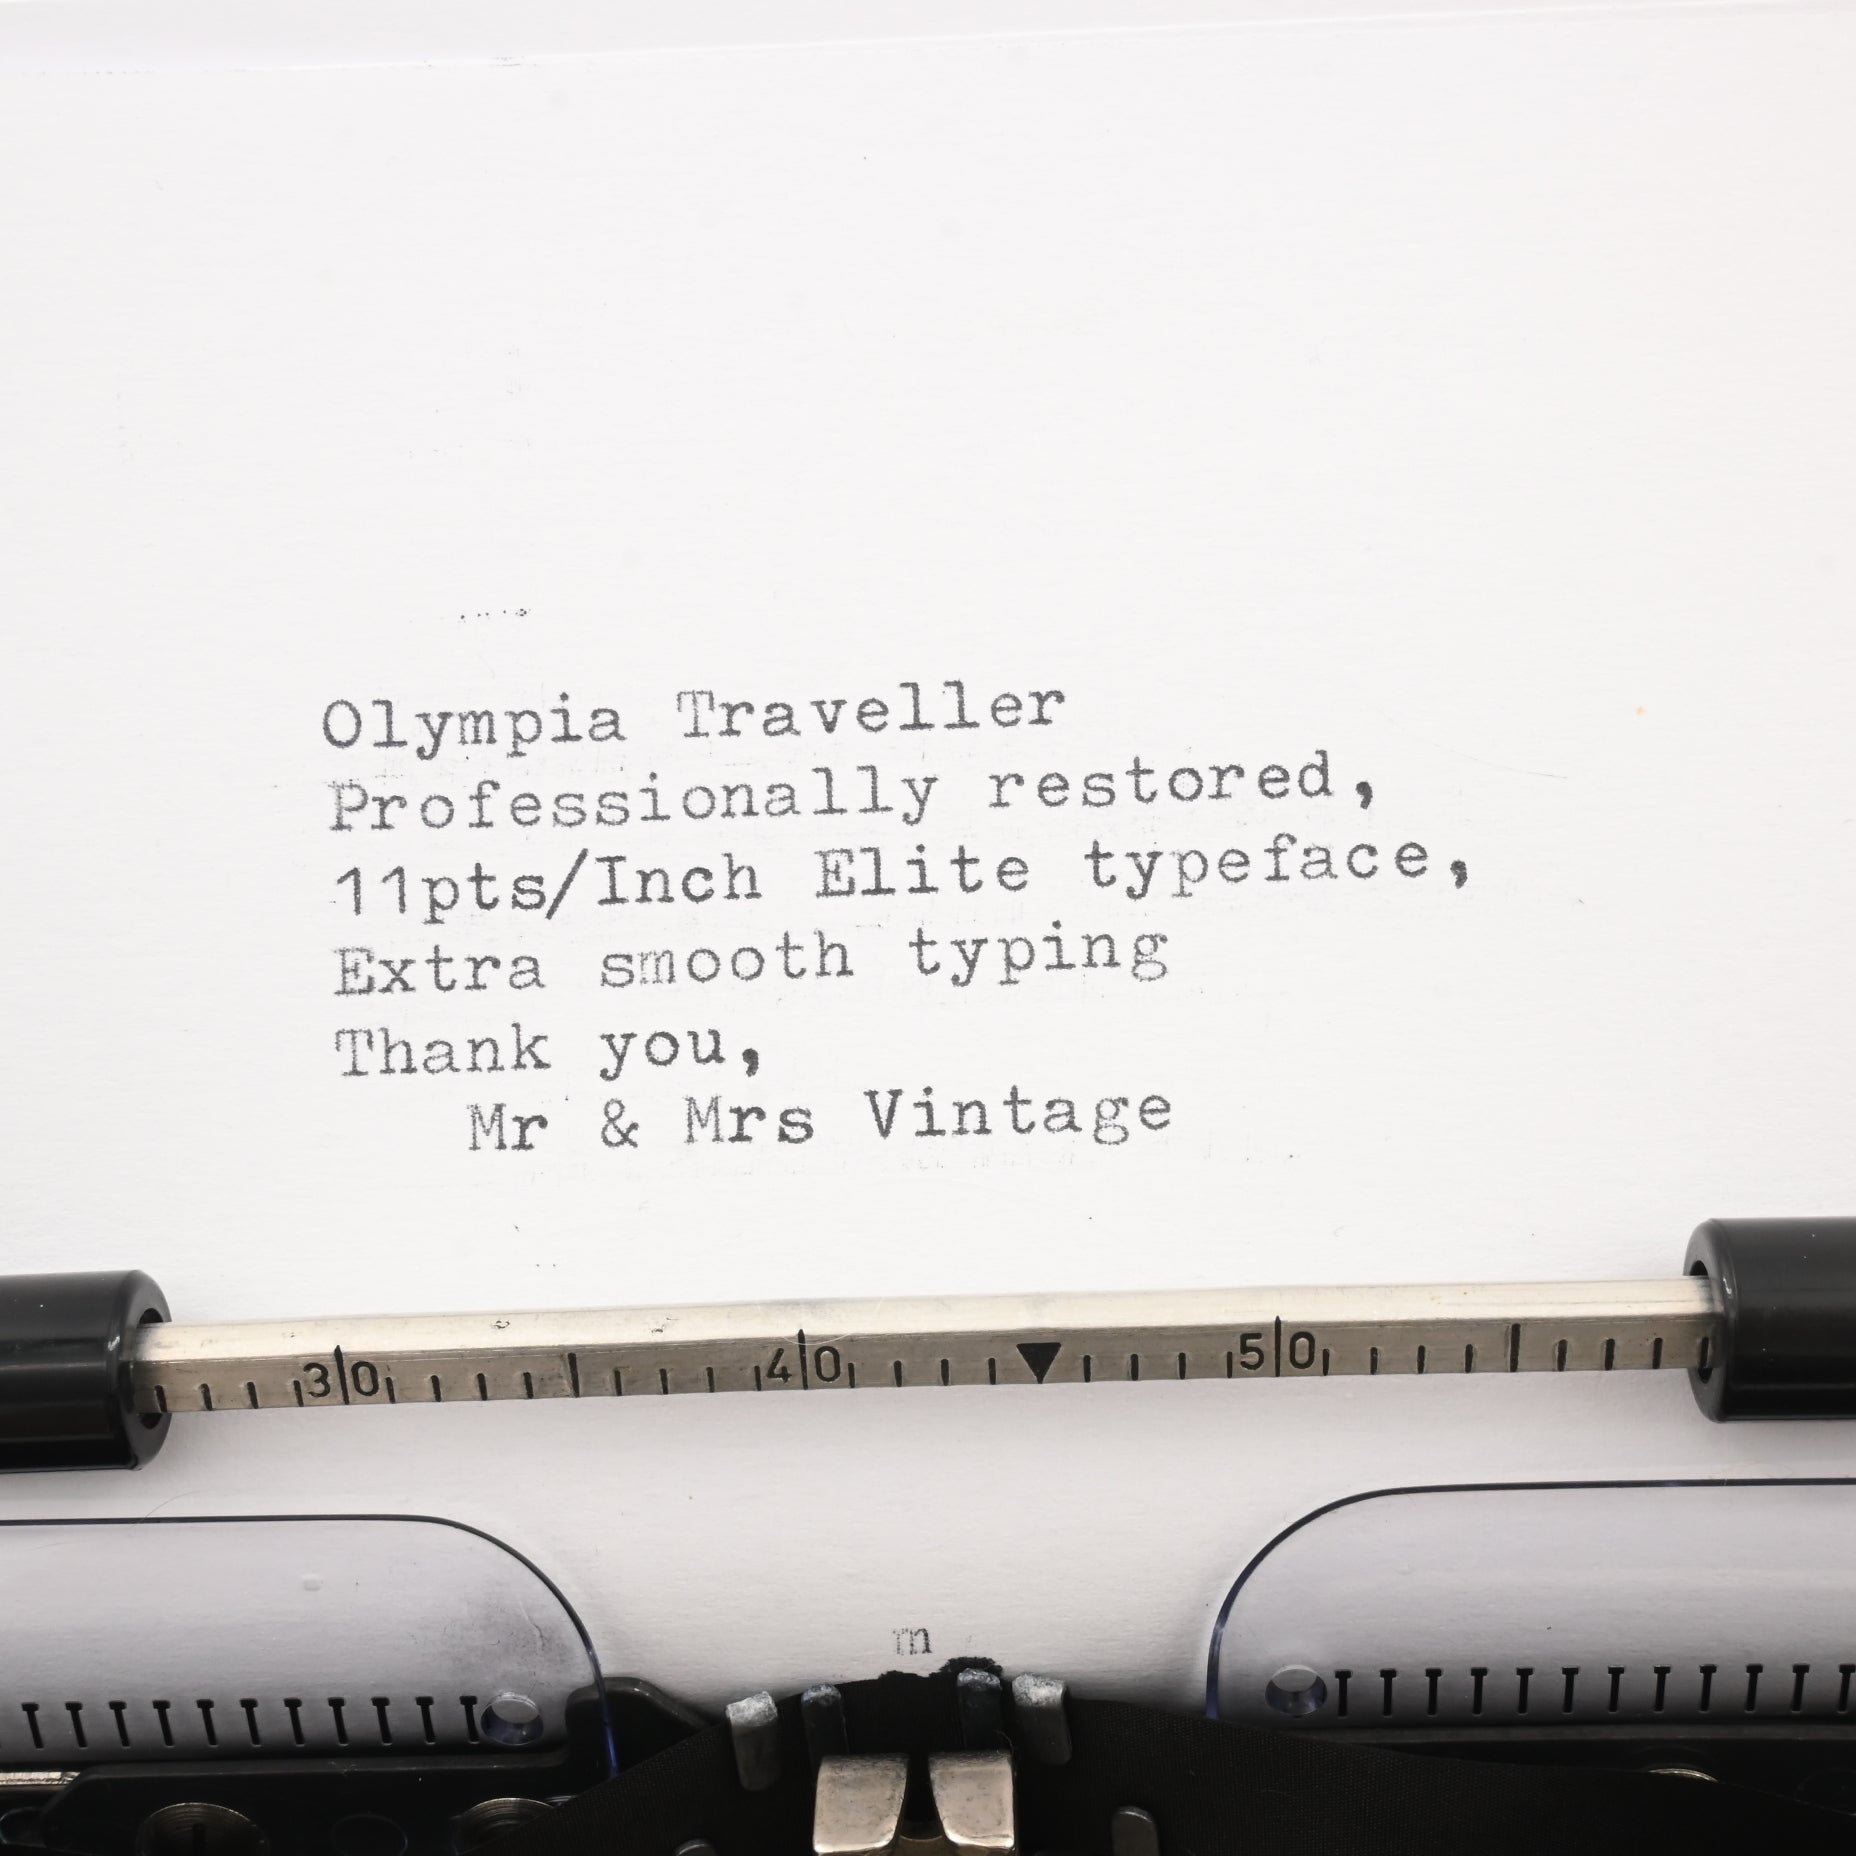 Olympia Traveller
Professionally restored,
11pts/Inch Elite typeface,
Extra smooth typing
Thank you,
Mr & Mrs Vintage
30 40 50
m